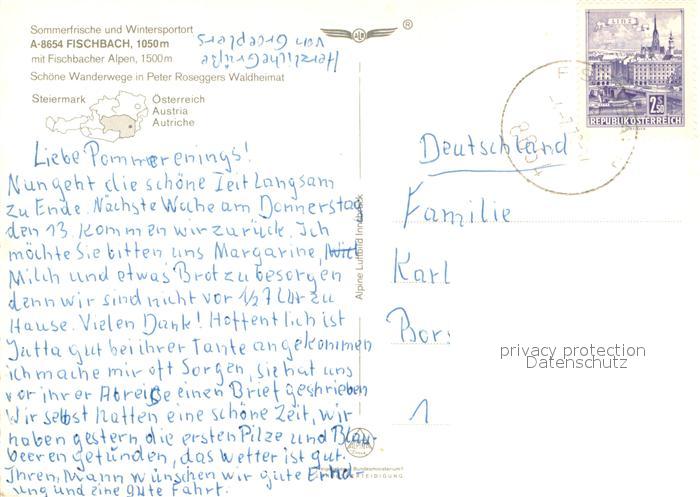 Sommerfrische und Wintersportort
A-8654 FISCHBACH, 1050m
mit Fischbacher Alpen, 1500m
Schöne Wanderwege in Peter Roseggers Waldheimat
Steiermark
Österreich
Austria
Autriche
Herzliche Grüße
von
®
LINZ
2.50
REPUBLIK ÖSTERREICH
Liebe Pommerenings!
Nun geht die schöne Zeit langsam
zu Ende. Nächste Woche am Donnerstag
den 13. kommen wir zurück. Ich
möchte Sie bitten uns Margarine,
Milch und etwas Brot zu besorgen
denn wir sind nicht vor 1/2 7 Uhr zu
Hause. Vielen Dank! Hoffentlich ist
Jutta gut bei ihrer Tante angekommen
ich mache mir oft Sorgen, sie hat uns
vor ihrer Abreise einen Brief geschrieben
Wir selbst hatten eine schöne Zeit, wir
haben gestern die ersten Pilze und Blau-
beeren gefunden, das Wetter ist gut.
Ihren Mann wünschen wir gute Erhol-
ung und eine gute Fahrt.
Alpine Luftbild Innsbruck
Deutschland
Familie
Karl
Bor
1
privacy protection
Datenschutz